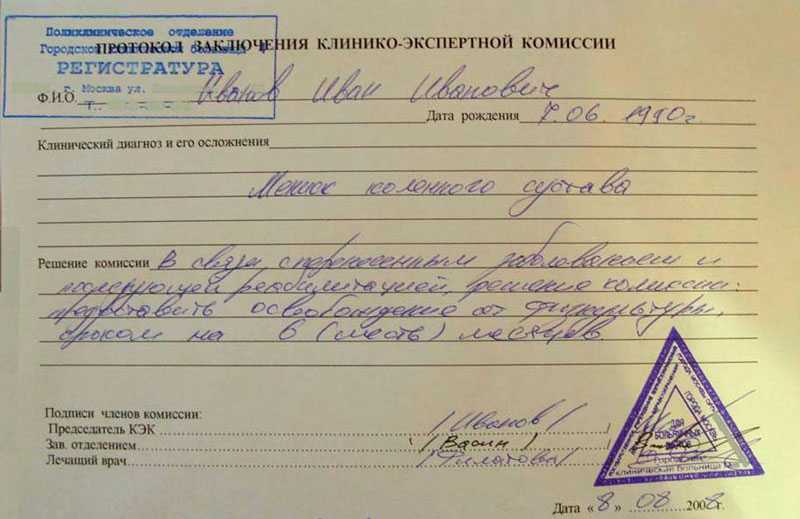 Поликлиническое отделение
Городской больницы
РЕГИСТРАТУРА
г. Москва ул.
Т.
ПРОТОКОЛ ЗАКЛЮЧЕНИЯ КЛИНИКО-ЭКСПЕРТНОЙ КОМИССИИ
Ф.И.О. Иванов Иван Иванович
Дата рождения 7.06. 1990г.
Клинический диагноз и его осложнения
коленного сустава
Решение комиссии В связи с перенесенным заболеванием и
последующей реабилитацией, решение комиссии:
предоставить освобождение от физкультуры,
сроком на 6 (шесть) месяцев.
Подписи членов комиссии:
Председатель КЭК /Иванов/
Зав. отделением /Васин/
Лечащий врач /Филатова/
ДЛЯ
БОЛЬНИЧНЫХ
ЛИСТКОВ
ГОРОДА МОСКВЫ
Городская
клиническая больница №
Дата «8» 08 2008г.